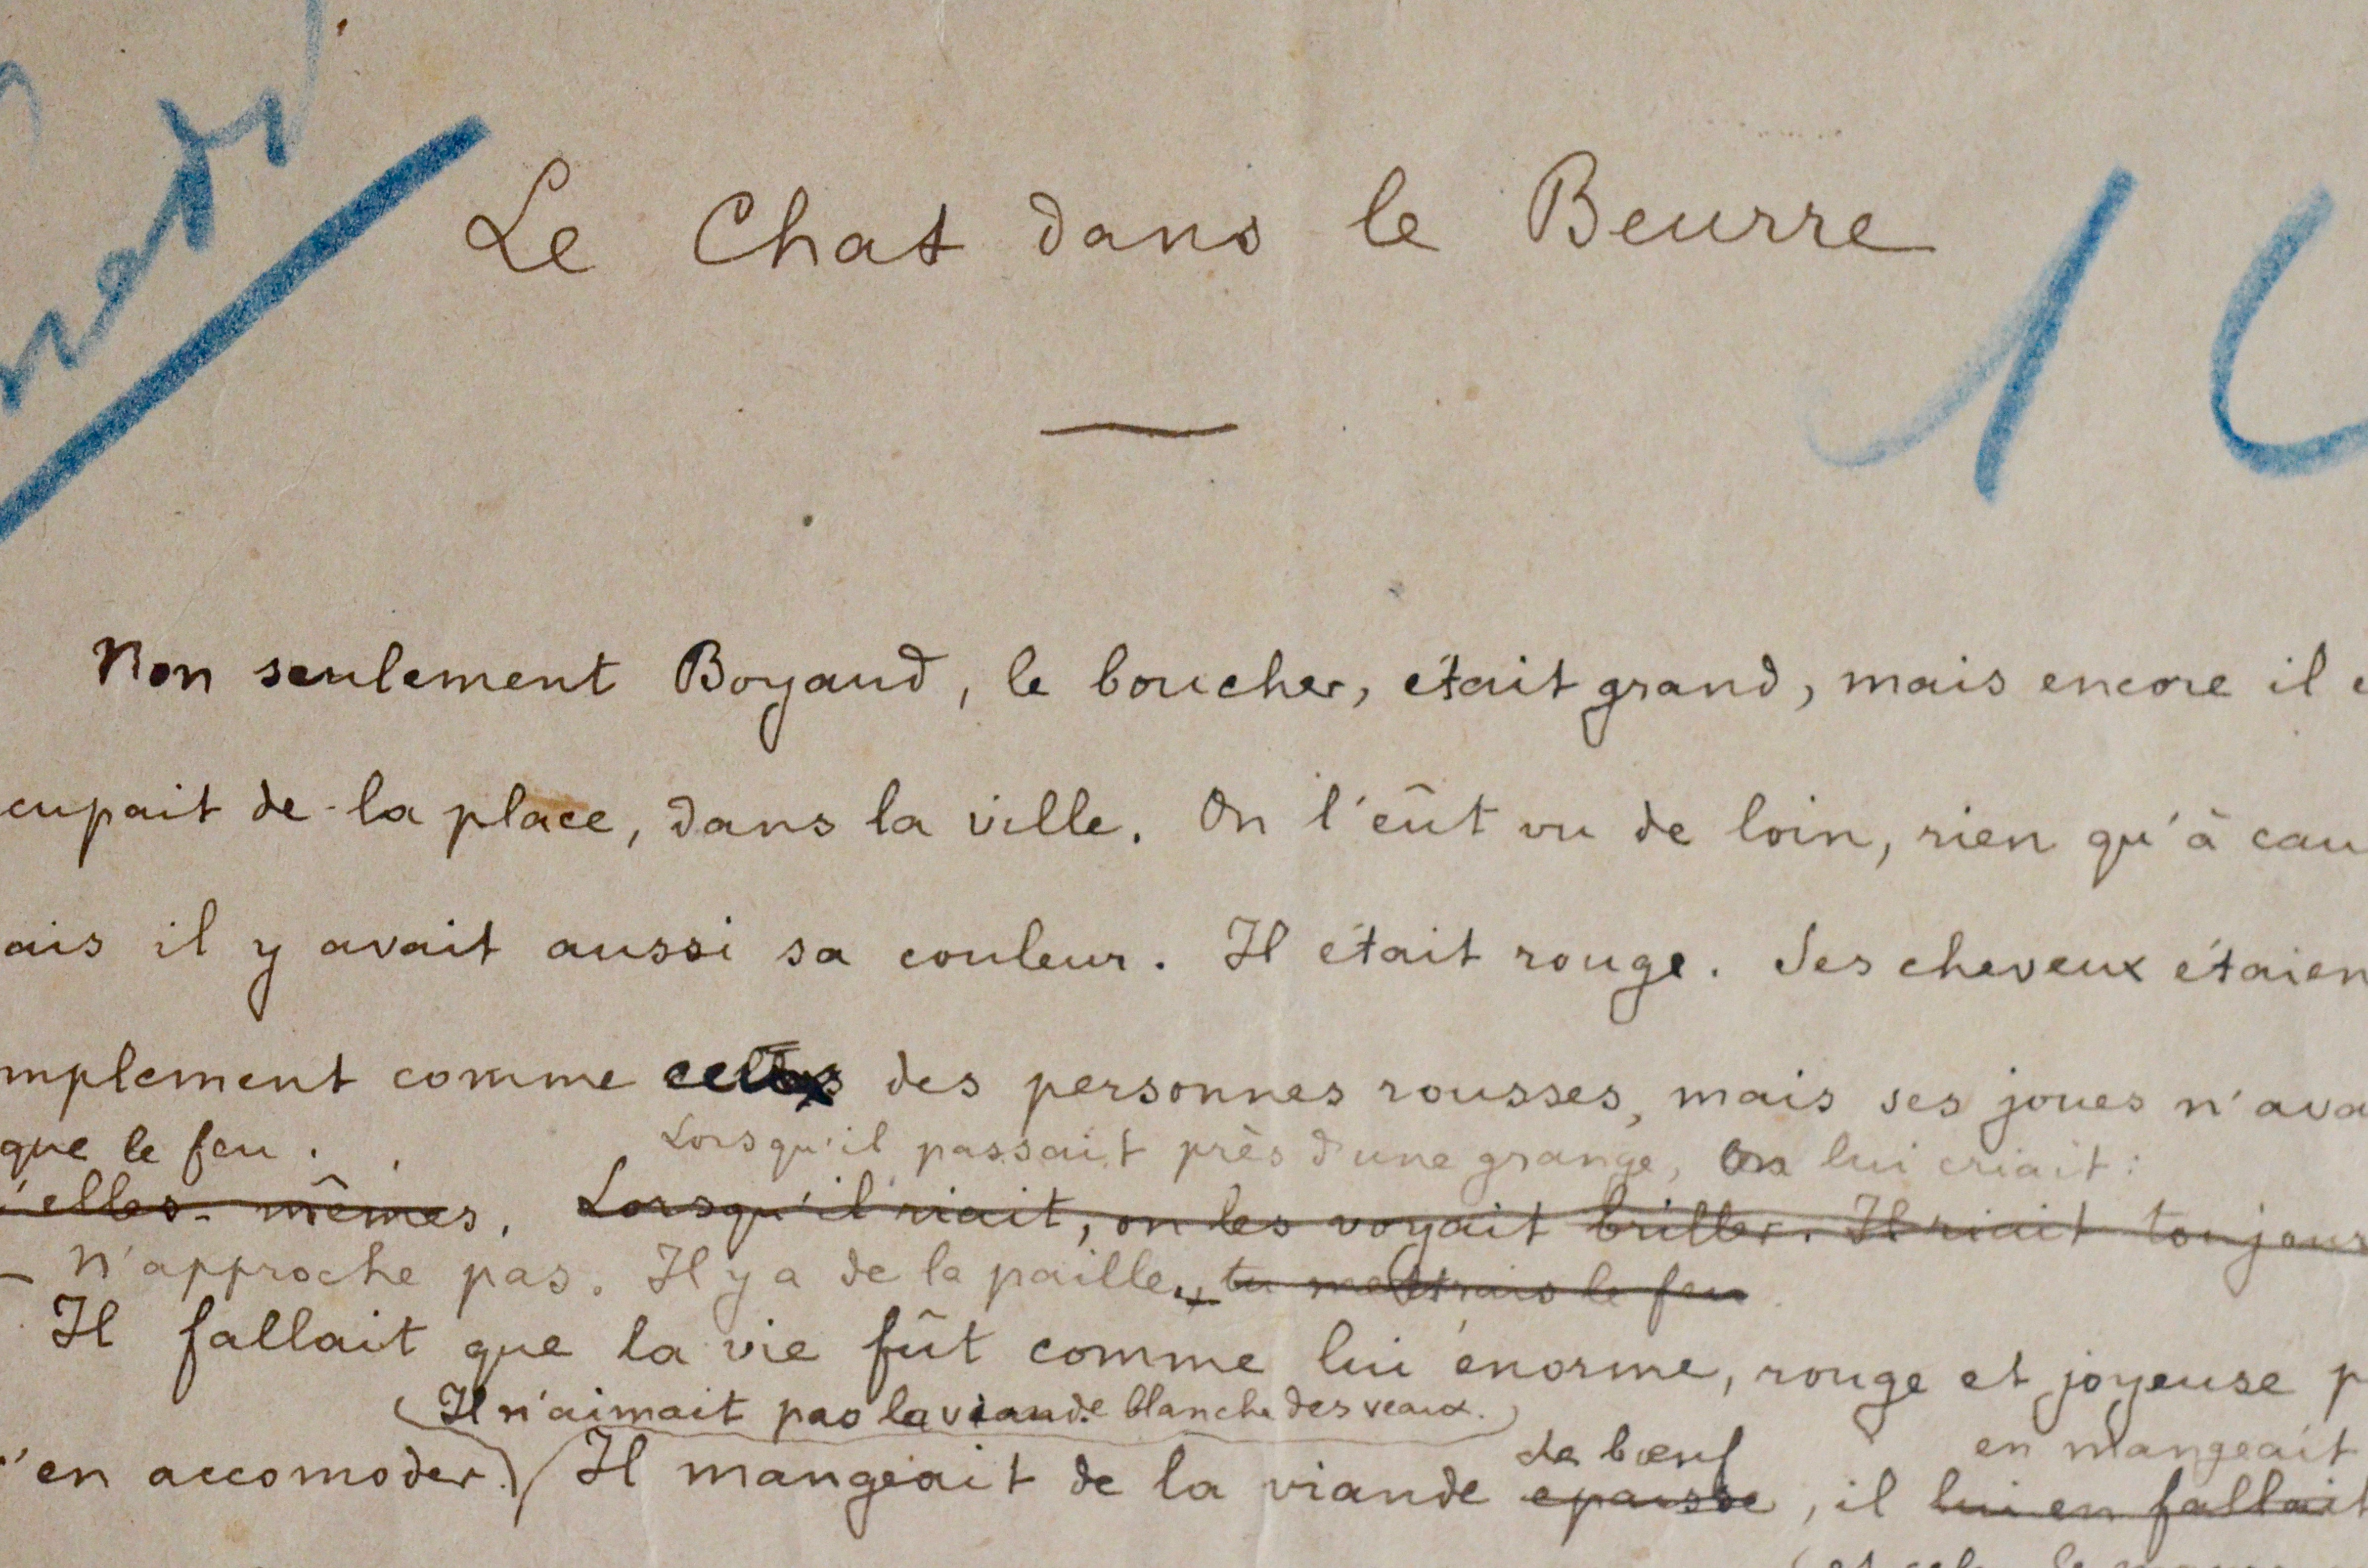 Le Chat dans le Beurre
Non seulement Boyaud, le boucher, était grand, mais encore il
cupait de la place, dans la ville. On l'eût vu de loin, rien qu'à cau
ais il y avait aussi sa couleur. Il était rouge. Ses cheveux étaien
mplement comme des personnes rousses, mais ses joues n'ava
que le feu. Lorsqu'il passait près d'une grange, on lui criait :
'elles-mêmes. Lorsqu'il riait, on les voyait briller. Il riait toujour
— N'approche pas. Il y a de la paille, tu mettrais le feu
Il fallait que la vie fût comme lui énorme, rouge et joyeuse p
Il n'aimait pas la viande blanche des veaux.
de bœuf en mangeait
'en accomoder. Il mangeait de la viande epaisse, il lui en fallait